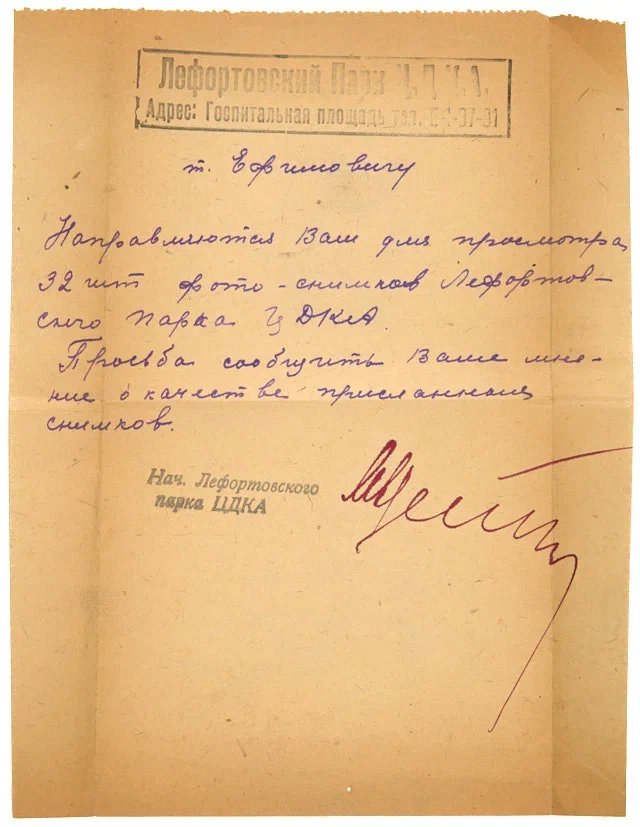 Лефортовский Парк Ц.Д.К.А.
Адрес: Госпитальная площадь тел. Е-1-37-01
т. Ефимовичу
Направляются Вам для просмотра
32 шт фото-снимков Лефортов-
ского Парка ЦДКА.
Просьба сообщить Ваше мне-
ние о качестве присланных
снимков.
Нач. Лефортовского
парка ЦДКА